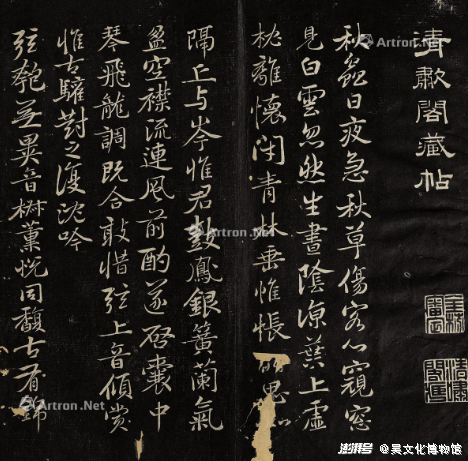 清歗閣藏帖
秋蟲日夜急秋草傷客心窺窓
見白雲忽然生晝陰涼葉上虛
枕離懷閉青林垂帷悵思
隔丘与岑惟君鼓鳳銀簧蘭氣
盈空襟流連風前酌遂啓囊中
琴飛龍調既合敢惜弦上音傾賞
惟古驩對之復沈吟
弦匏並異音樹薰悅同馥古有錦
Artron.Net
Artron.Net
Artron.Net
Artron.Net
Artron.Net
澎湃号 @吴文化博物馆